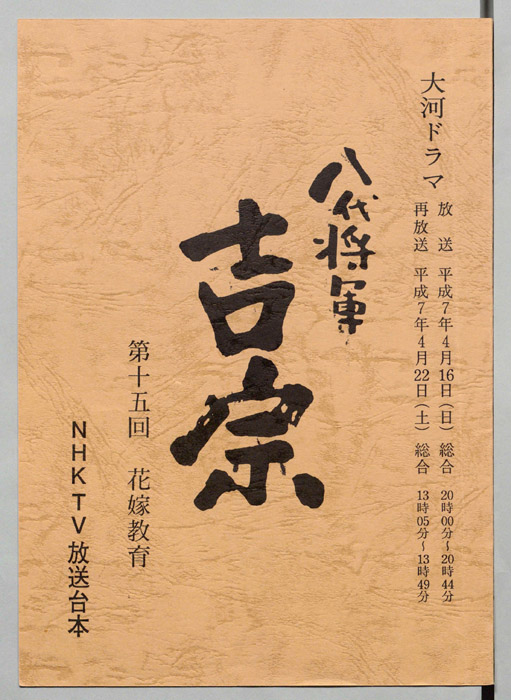 大河ドラマ
放　送　平成7年4月16日（日）総合　20時00分〜20時44分
再放送　平成7年4月22日（土）総合　13時05分〜13時49分
八代将軍
吉宗
第十五回　花嫁教育
NHK TV 放送台本